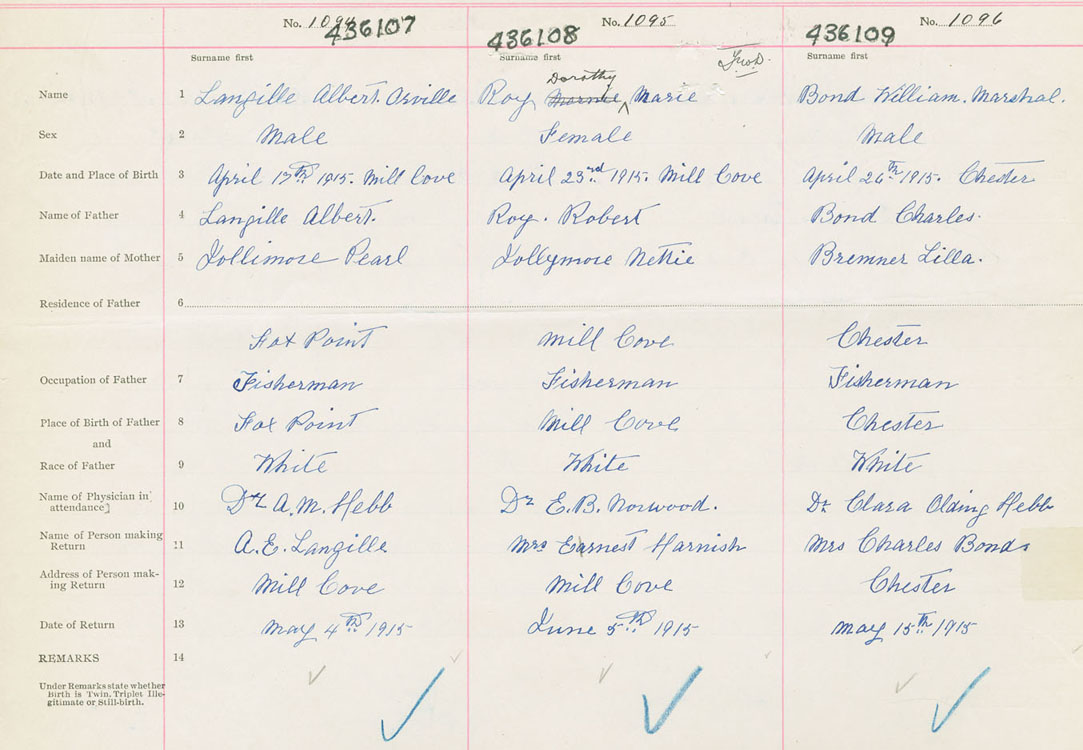 No. 1094 No. 1095 No. 1096
436107 436108 436109
Surname first Surname first Surname first
Dorothy
Name 1 Langille Albert Orville Roy, Marie Bond William. Marshal.
Sex 2 Male Female Male
Date and Place of Birth 3 April 17th 1915. Mill Cove April 23rd 1915. Mill Cove April 26th 1915. Chester
Name of Father 4 Langille Albert. Roy. Robert Bond Charles.
Maiden name of Mother 5 Jollimore Pearl Jollymore Nettie Bremner Lilla.
Residence of Father 6
Fox Point Mill Cove Chester
Occupation of Father 7 Fisherman Fisherman Fisherman
Place of Birth of Father 8 Fox Point Mill Cove Chester
and
Race of Father 9 White White White
Name of Physician in
attendance] 10 Dr. A.M. Hebb Dr E.B. Norwood. Dr Clara Olding Hebb
Name of Person making
Return 11 A.E. Langille Mrs Earnest Harnish Mrs Charles Bond
Address of Person mak-
ing Return 12 Mill Cove Mill Cove Chester
Date of Return 13 May 4th 1915 June 5th 1915 May 15th 1915
REMARKS 14
Under Remarks state whether
Birth is Twin, Triplet Ille-
gitimate or Still-birth.